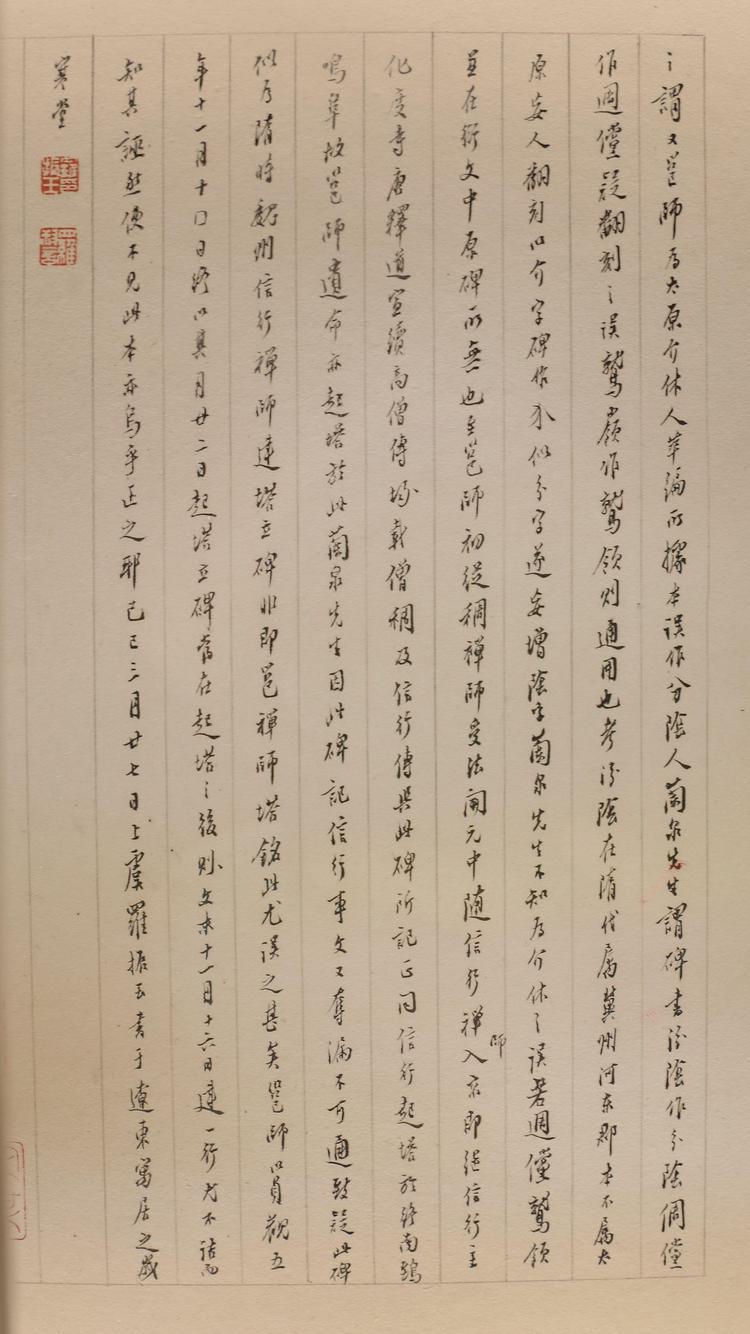 之謂又邕師為太原介休人萃編所據本誤作分陰人蘭泉先生謂碑書汾陰作分陰倜儻
作週儻疑翻刻之誤鷲嶺作鷲領則通用也考汾陰在隋代屬冀州河東郡本不屬太
原妄人翻刻以介字碑作尒似分字遂妄增陰字蘭泉先生不知為介休之誤若週儻鷲領
並在衍文中原碑所無也至邕師初從稠禪師受法開元中隨信行禪師入京即繼信行主
化度寺唐釋道宣續高僧傳均載僧稠及信行傳與此碑所記正同信行起塔於終南鵄
鳴阜故邕師遺命亦起塔於此蘭泉先生因此碑記信行事文又奪漏不可通致疑此碑
似為隋時魏州信行禪師建塔立碑非即邕禪師塔銘此尤誤之甚矣邕師以貞觀五
年十一月十□日終以其月廿二日起塔立碑當在起塔之後則文末十一月十六日建一行尤不詰而
知其誣然使不見此本亦烏乎正之耶己巳三月廿七日上虞羅振玉書于遼東寓居之歲
寒堂